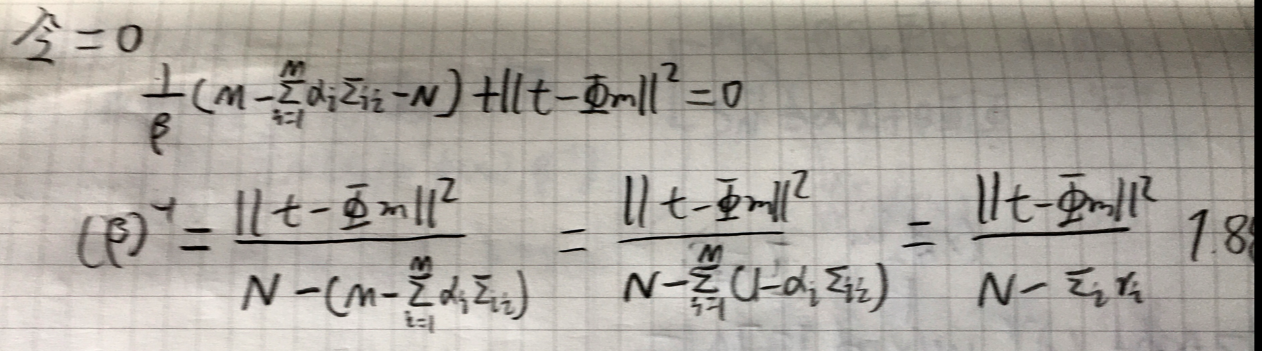 令=0
1/β (M - Σ_{i=1}^{M} α_i Σ_{ii} - N) + ||t - Φm||² = 0
(β)^{-1} = ||t - Φm||² / (N - (M - Σ_{i=1}^{M} α_i Σ_{ii})) = ||t - Φm||² / (N - Σ_{i=1}^{M} (1 - α_i Σ_{ii})) = ||t - Φm||² / (N - Σ_i γ_i) 7.8